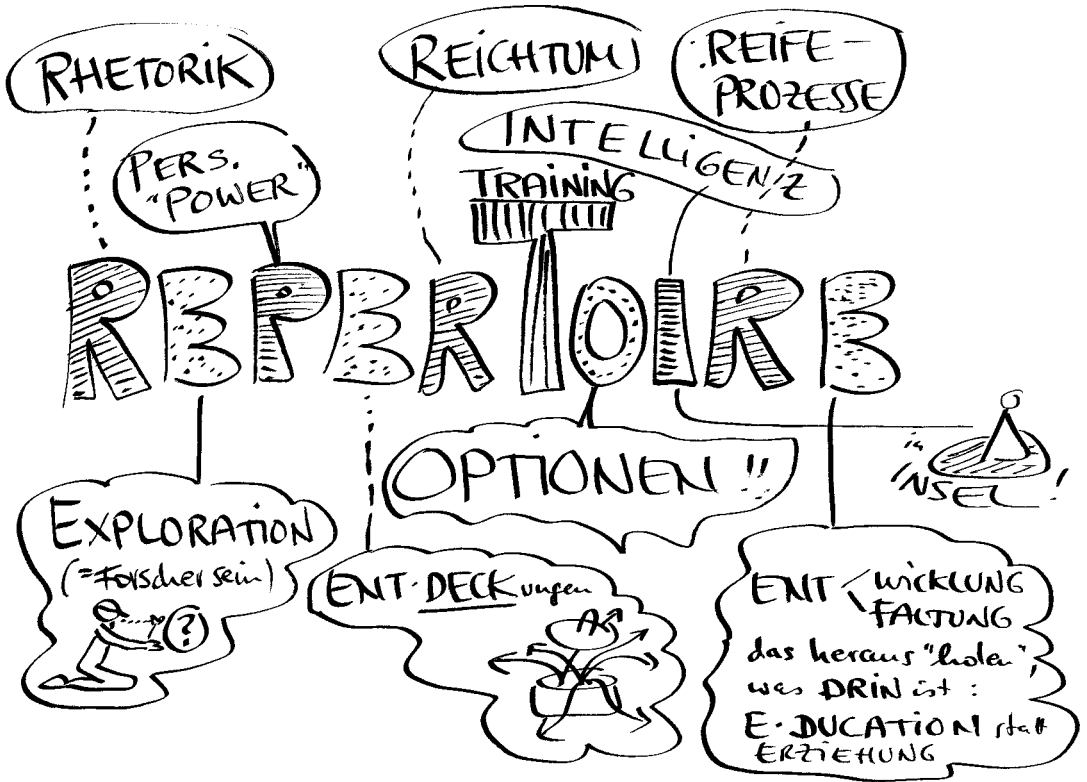 RHETORIK
REICHTUM
REIFE-
PROZESSE
PERS.
"POWER"
INTELLIGENZ
TRAINING
REPERTOIRE
OPTIONEN"
in
'NSEL!
EXPLORATION
(=Forscher sein)
?
ENT·DECKungen
ENT WICKLUNG
FALTUNG
das heraus "holen",
was DRIN ist:
E·DUCATION statt
ERZIEHUNG